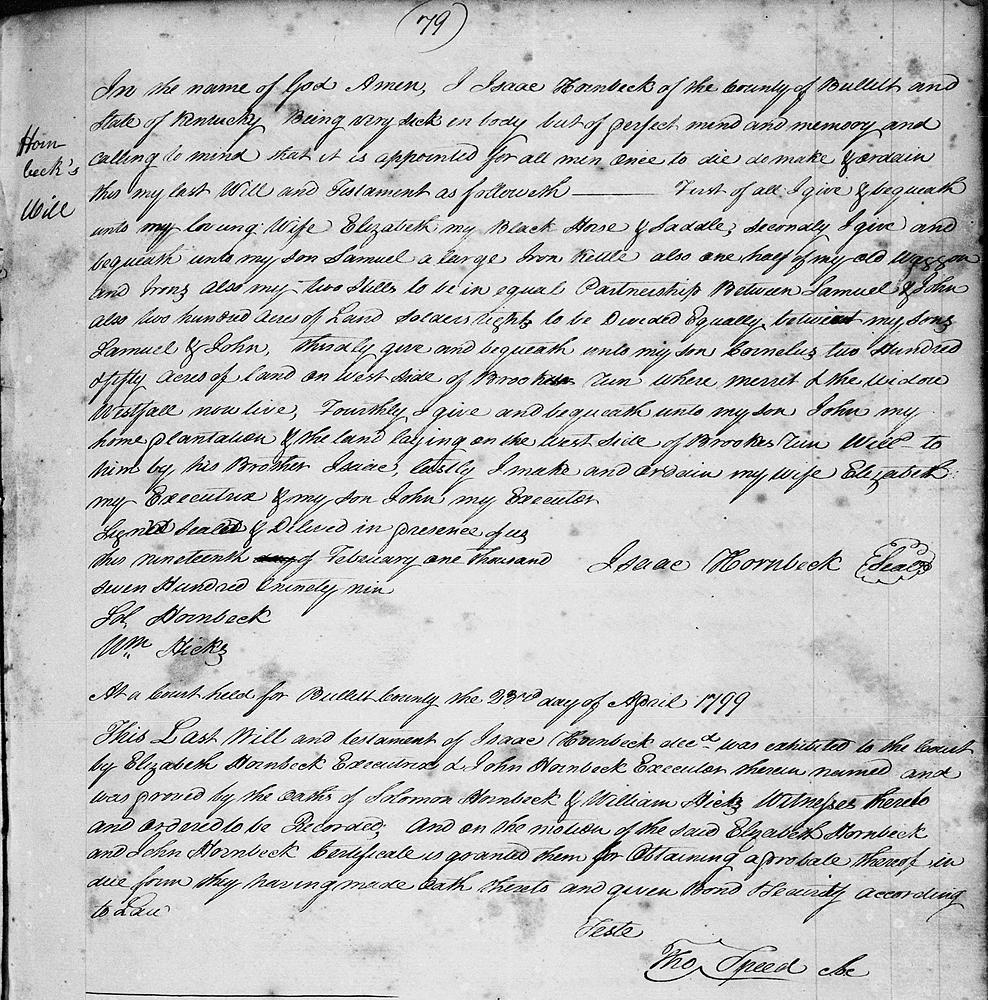 (79)
Horn
beck's
Will
In the name of God Amen, I Isaac Hornbeck of the County of Bullitt and
State of Kentucky Being very sick in body but of perfect mind and memory and
calling to mind that it is appointed for all men once to die do make & ordain
this my last Will and Testament as followeth ——— First of all I give & bequeath
unto my loving Wife Elizabeth my Black Horse & Saddle, secondly I give and
bequeath unto my son Samuel a large Iron Kettle also one half of my old Waggon
and Irons also my two Stills to be in equal Partnership Between Samuel & John
also two hundred acres of Land Solders rights to be Divided Equally between my sons
Samuel & John, thirdly give and bequeath unto my son Cornelus two Hundred
& fifty acres of land on west side of Brookes Run where merret & the widow
Westfall now live, Fourthly I give and bequeath unto my son John my
home plantation & the land laying on the west side of Brookes Run Will'd to
him by his Brother Isaac, lastly I make and ordain my wife Elizabeth
my Executrix & my son John my Executor
Signed Sealed & Delived in presence of us
this nineteenth day of February one thousand
seven Hundred & ninety nin
Isaac Hornbeck (Seal)
Sol. Hornbeck
Wm Hicks
At a Court held for Bullitt County the 23rd day of April 1799
This Last Will and testament of Isaac Hornbeck decd was exhibited to the Court
by Elizabeth Hornbeck Executrix & John Hornbeck Executor therein named and
was proved by the oaths of Solomon Hornbeck & William Hicks Witnesses thereto
and ordered to be Recorded, And on the motion of the said Elizabeth Hornbeck
and John Hornbeck Certificate is granted them for Obtaining a probate thereof in
due form they having made Oath thereto and given Bond & Security according
to Law
Teste
Tho Speed